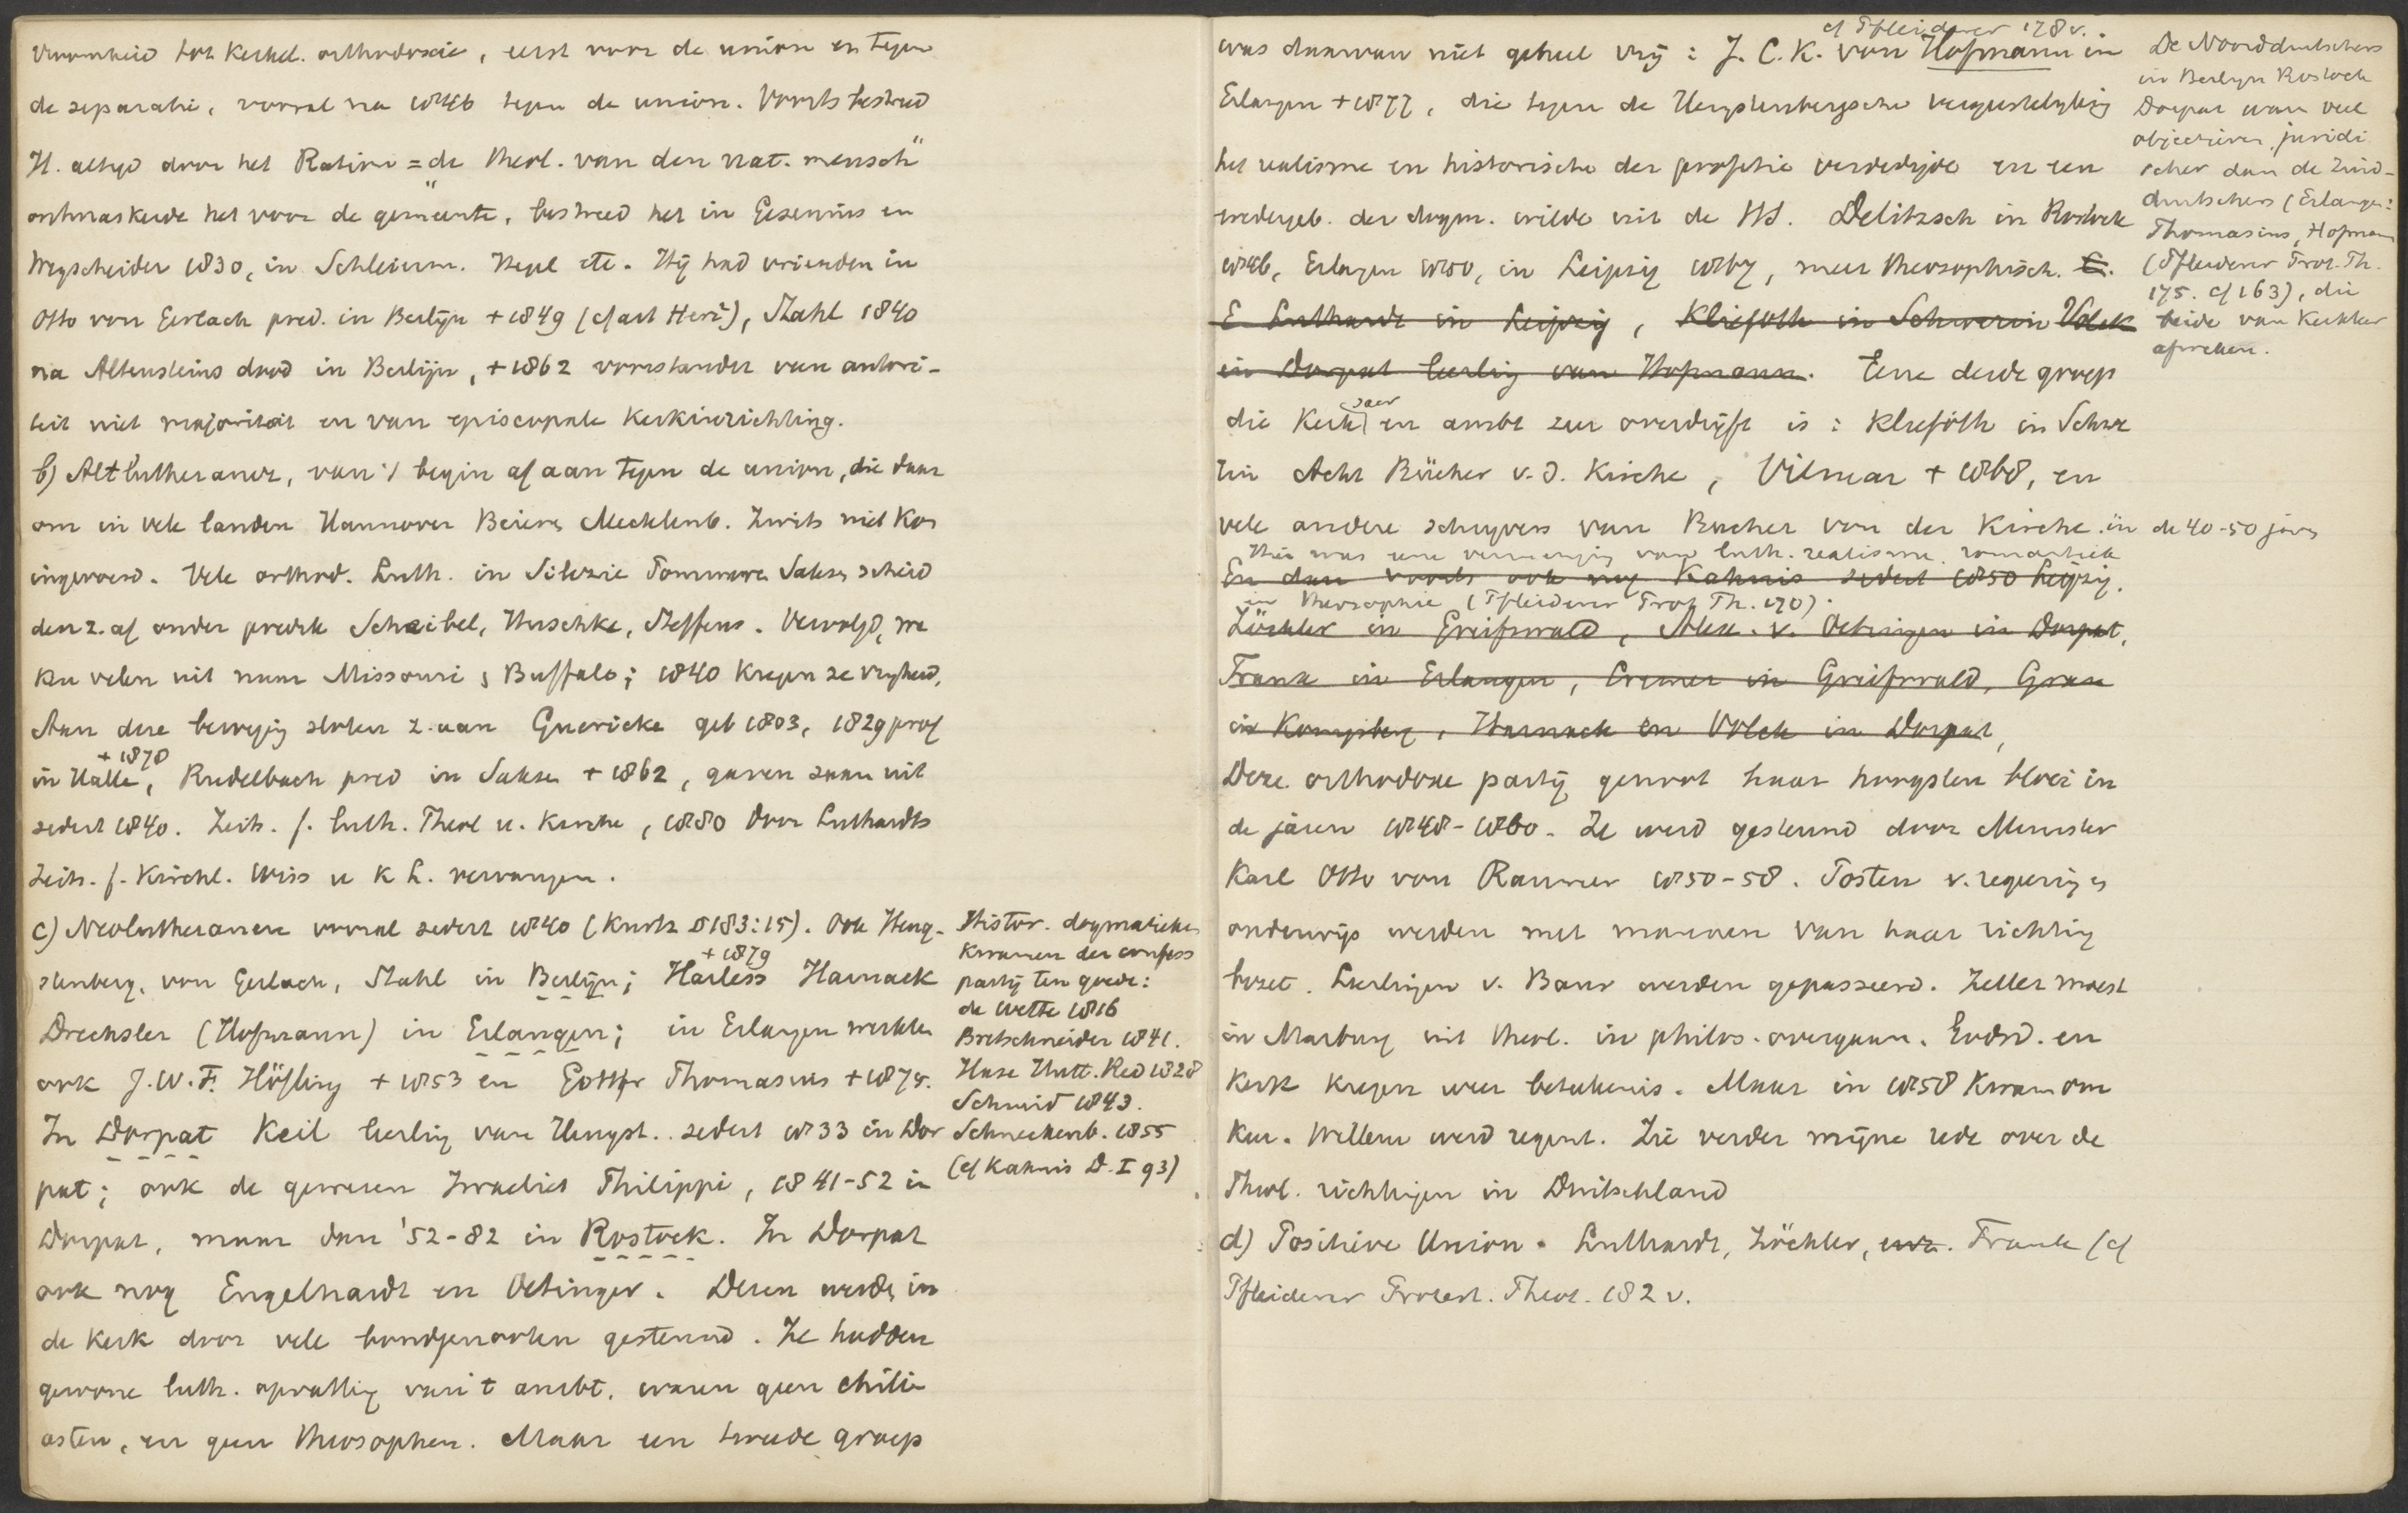 vroomheid tot kerkel. orthodoxie, eerst voor de union en tegen
de separatie, vooral na 1846 tegen de union. Voorts bestreed
H. altijd door het Ration = "de theol. van den nat. mensch"
ontmaskerde het voor de gemeente, bestreed het in Gesenius en
Wegscheider 1830, in Schleierm. Hegel etc. Hij had vrienden in
Otto von Gerlach pred. in Berlijn + 1849 (cf art Herz), Stahl 1840
na Altensteins dood in Berlijn, + 1862 voorstander van autori-
teit niet majoriteit en van episcopale kerkinrichting.
b) Altlutheraner, van 't begin af aan tegen de union, die daar
om in vele landen Hannover Beieren Mecklenb. Zwits niet kon
ingevoerd. Vele orthod. Luth. in Silezie Pommeren Saksen scheid
den z. af onder predik Scheibel, Huschke, Steffens. Vervolgd, we
ken velen uit naar Missouri en Buffalo; 1840 kregen ze vrijheid.
Aan deze beweging sloten z. aan Guericke geb 1803, 1829 prof
+ 1878
in Halle, Rudelbach pred in Saksen + 1862, gaven saam uit
sedert 1840. Zeits. f. luth. Theol u. Kirche, 1880 door Luthardts
Zeits. f. Kirchl. Wiss u k L. vervangen.
c) Neolutheranen vooral sedert 1840 (Kurtz § 183:15). Ook Heng-
stenberg, von Gerlach, Stahl in Berlijn; Harless Harnack
+ 1879
Drechsler (Hofmann) in Erlangen; in Erlangen werkten
ook J.W.F. Höfling + 1853 en Gottfr Thomasius + 1875.
In Dorpat Keil leerling van Hengst. sedert 1833 in Dor
pat; ook de gewezen Israeliet Philippi, 1841-52 in
Dorpat, maar dan '52-82 in Rostock. In Dorpat
ook nog Engelhardt en Oetinger. Dezen werden in
de kerk door vele bondgenooten gesteund. Ze hadden
gewone luth. opvatting van 't ambt, waren geen chili
asten, en geen theosophen. Maar een tweede groep
Histor. dogmatieken
kwamen der confess
partij ten goede:
de Wette 1816
Bretschneider 1841.
Hase Hutt. Red 1828
Schmid 1843.
Schneckenb. 1855
(cf Kahnis D. I 93)
cf Pfleiderer 178 v.
was daarvan niet geheel vrij: J. C. K. von Hofmann in
Erlangen + 1877, die tegen de Hengstenbergsche vergeestelijking
het realisme en historische der profetie verdedigde en een
wedergeb. der dogm. wilde uit de HS. Delitzsch in Rostock
1846, Erlangen 1850, in Leipzig 1867, meer theosophisch. E.
E Luthardt in Leipzig, Kliefoth in Schwerin Volck
in Dorpat leerling van Hofmann. Eene derde groep
die Kerk en ambt zeer overdrijft is: Kliefoth in Schwe
rin Acht Bücher v. d. Kirche, Vilmar + 1868, en
vele andere schrijvers van Bücher von der Kirche. in de 40-50 jaren
Hier was eene vermenging van luth. realisme, romantiek
En dan voorts ook nog Kahnis sedert 1850 Leipzig.
en theosophie (Pfleiderer Prot Th. 170).
Zöckler in Greifswald, Alex. v. Oettingen in Dorpat,
Frank in Erlangen, Cremer in Greifswald, Grau
in Konigsberg, Harnack en Volck in Dorpat,
Deze orthodoxe partij genoot haar hoogsten bloei in
de jaren 1848-1860. Ze werd gesteund door Minister
Karl Otto von Raumer 1850-58. Posten v. regering en
onderwijs werden met mannen van haar richting
bezet. Leerlingen v. Baur werden gepasseerd. Zeller moest
in Marburg uit theol. in philos. overgaan. Godsd. en
Kerk kregen weer beteekenis. Maar in 1858 kwam om
keer. Willem werd regent. Zie verder mijne rede over de
Theol. richtingen in Duitschland
d) Positieve Union. Luthardt, Zöckler, Frank (cf
Pfleiderer Protest. Theol. 182 v.
De Noordduitschers
in Berlijn Rostock
Dorpat waren veel
objectiever, juridi
scher dan de Zuid-
duitschers (Erlangen:
Thomasius, Hofmann
(Pfleiderer Prot. Th.
175. cf 163), die
beide van Kerkleer
afweken.